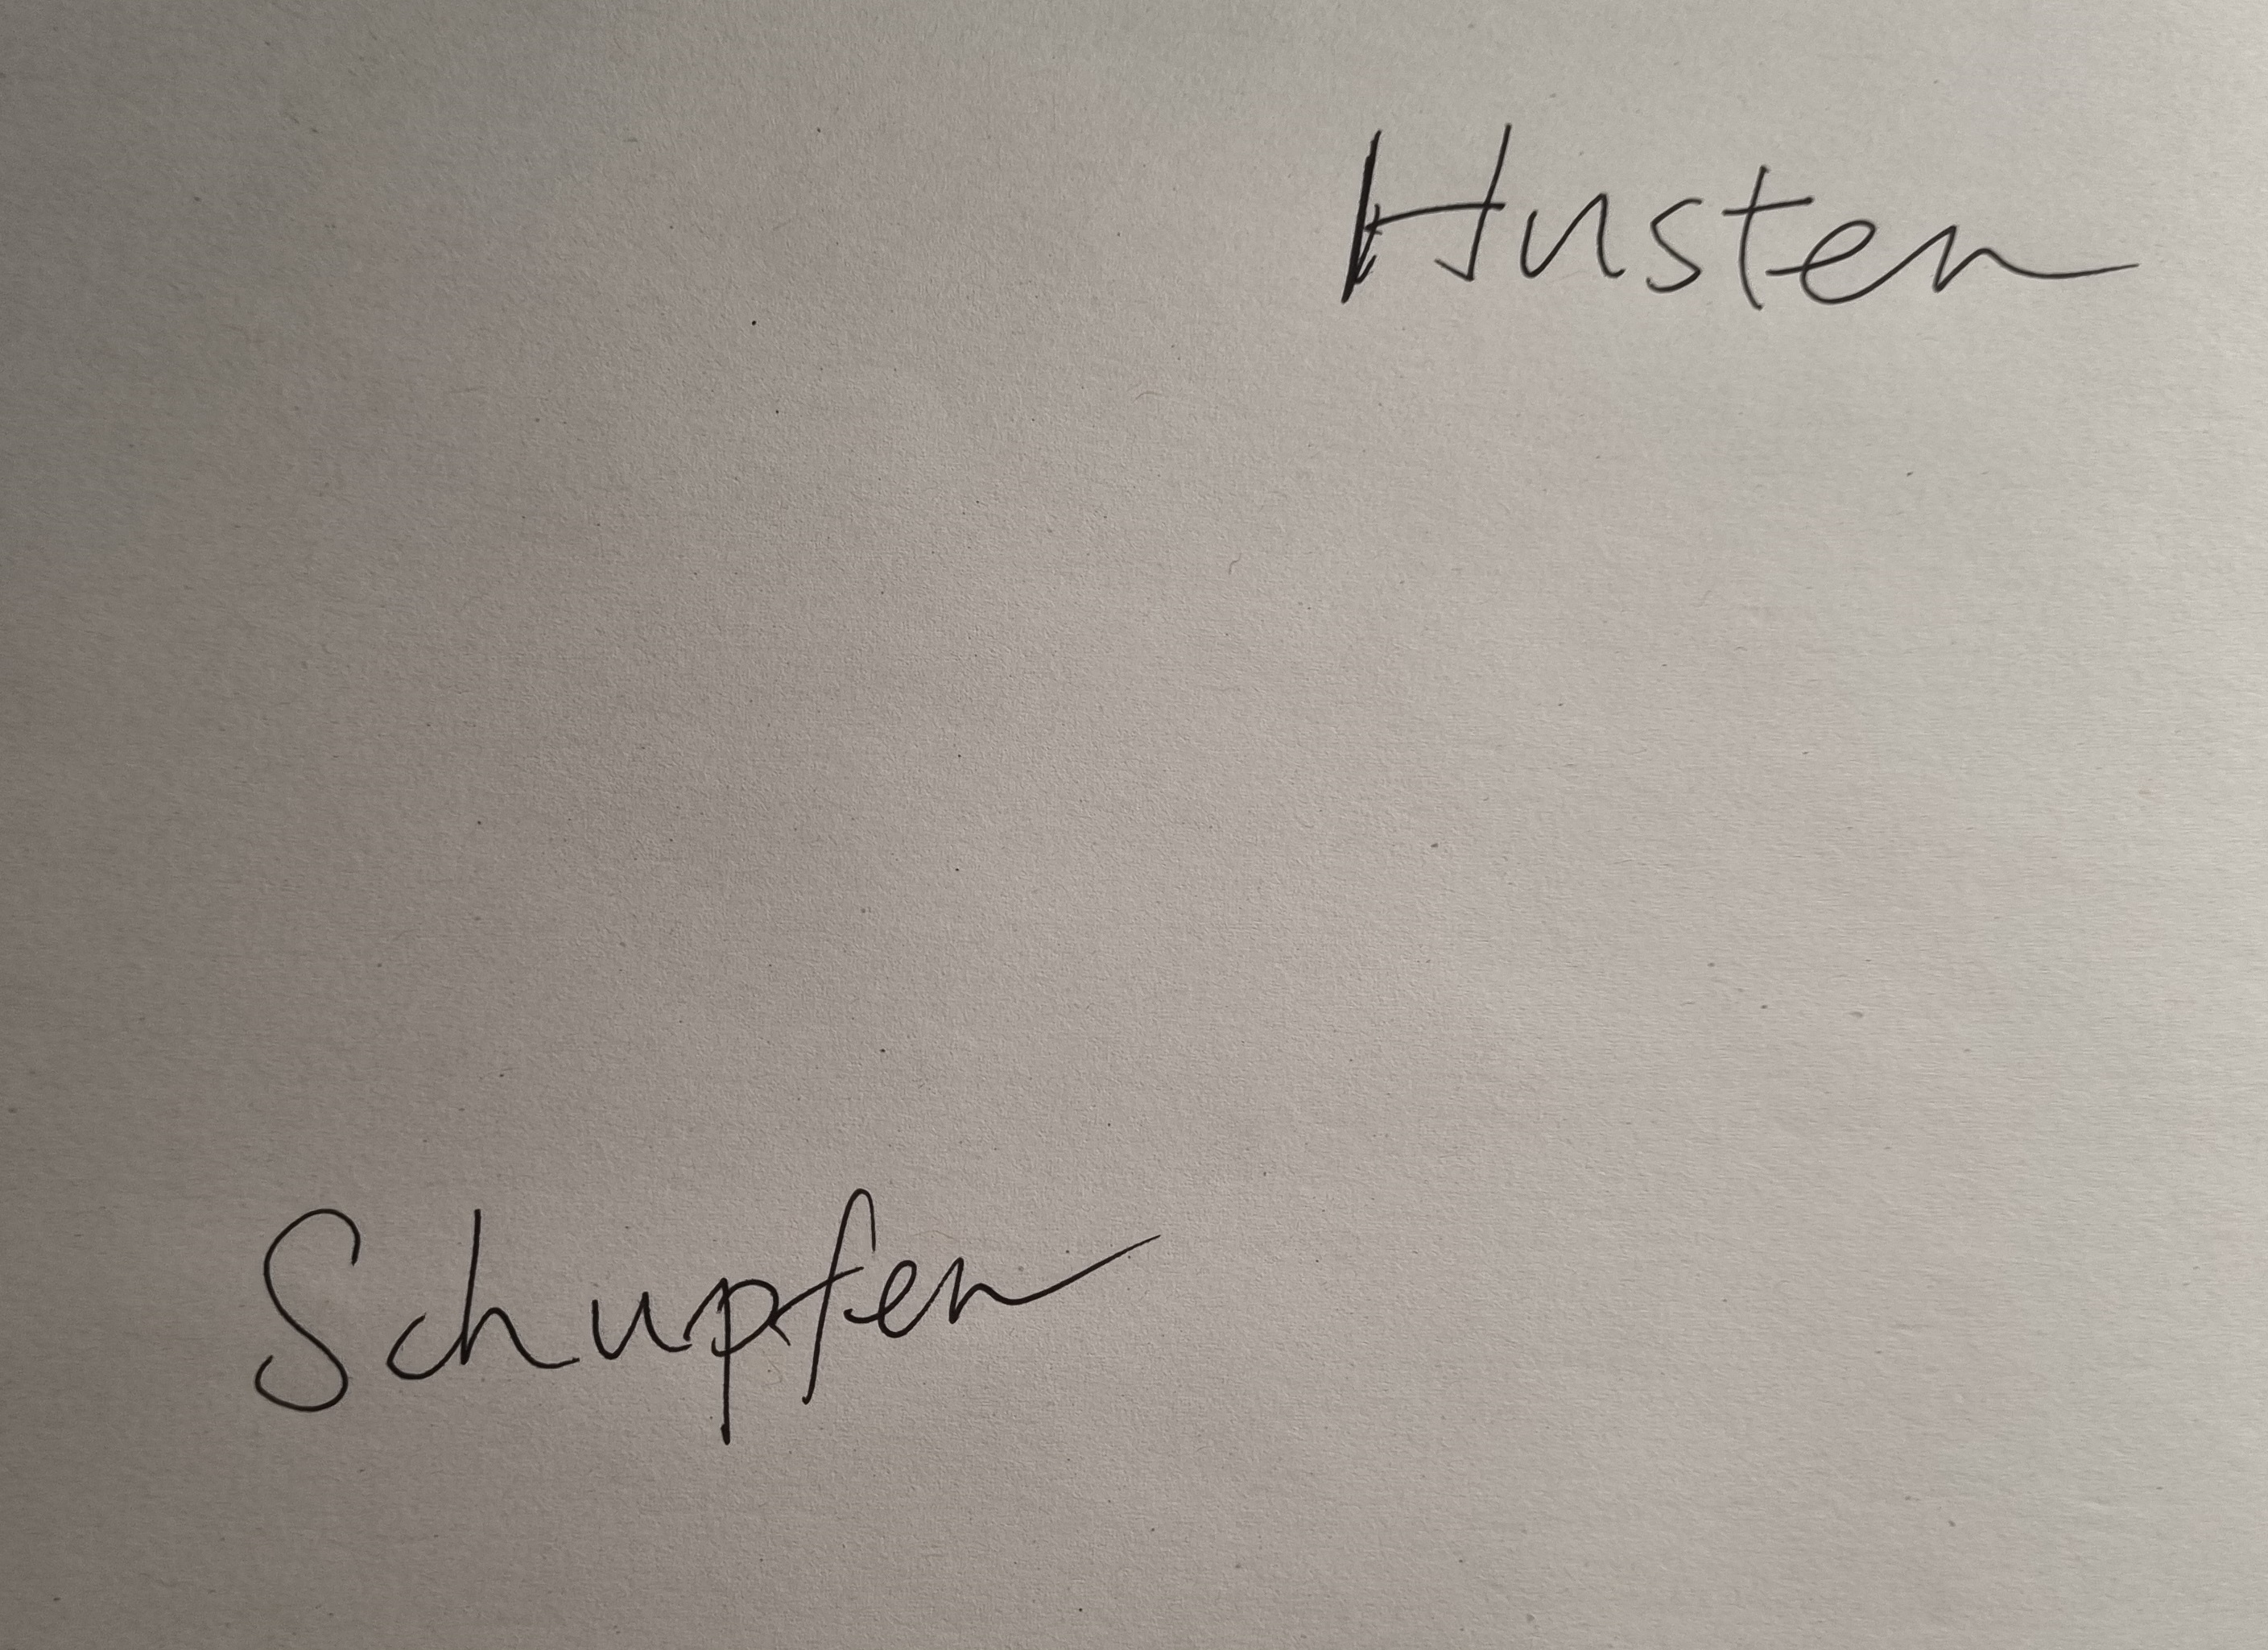 Husten
Schupfen